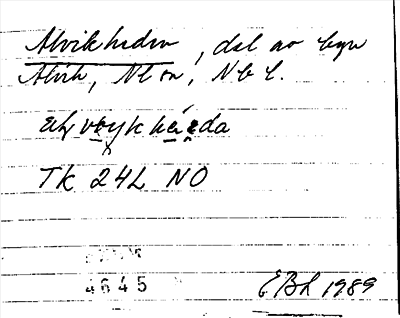 Alvikheden, del av byn
Alvik, Nl sn, Nb l.
TK 24L NO
4645
EBL 1989